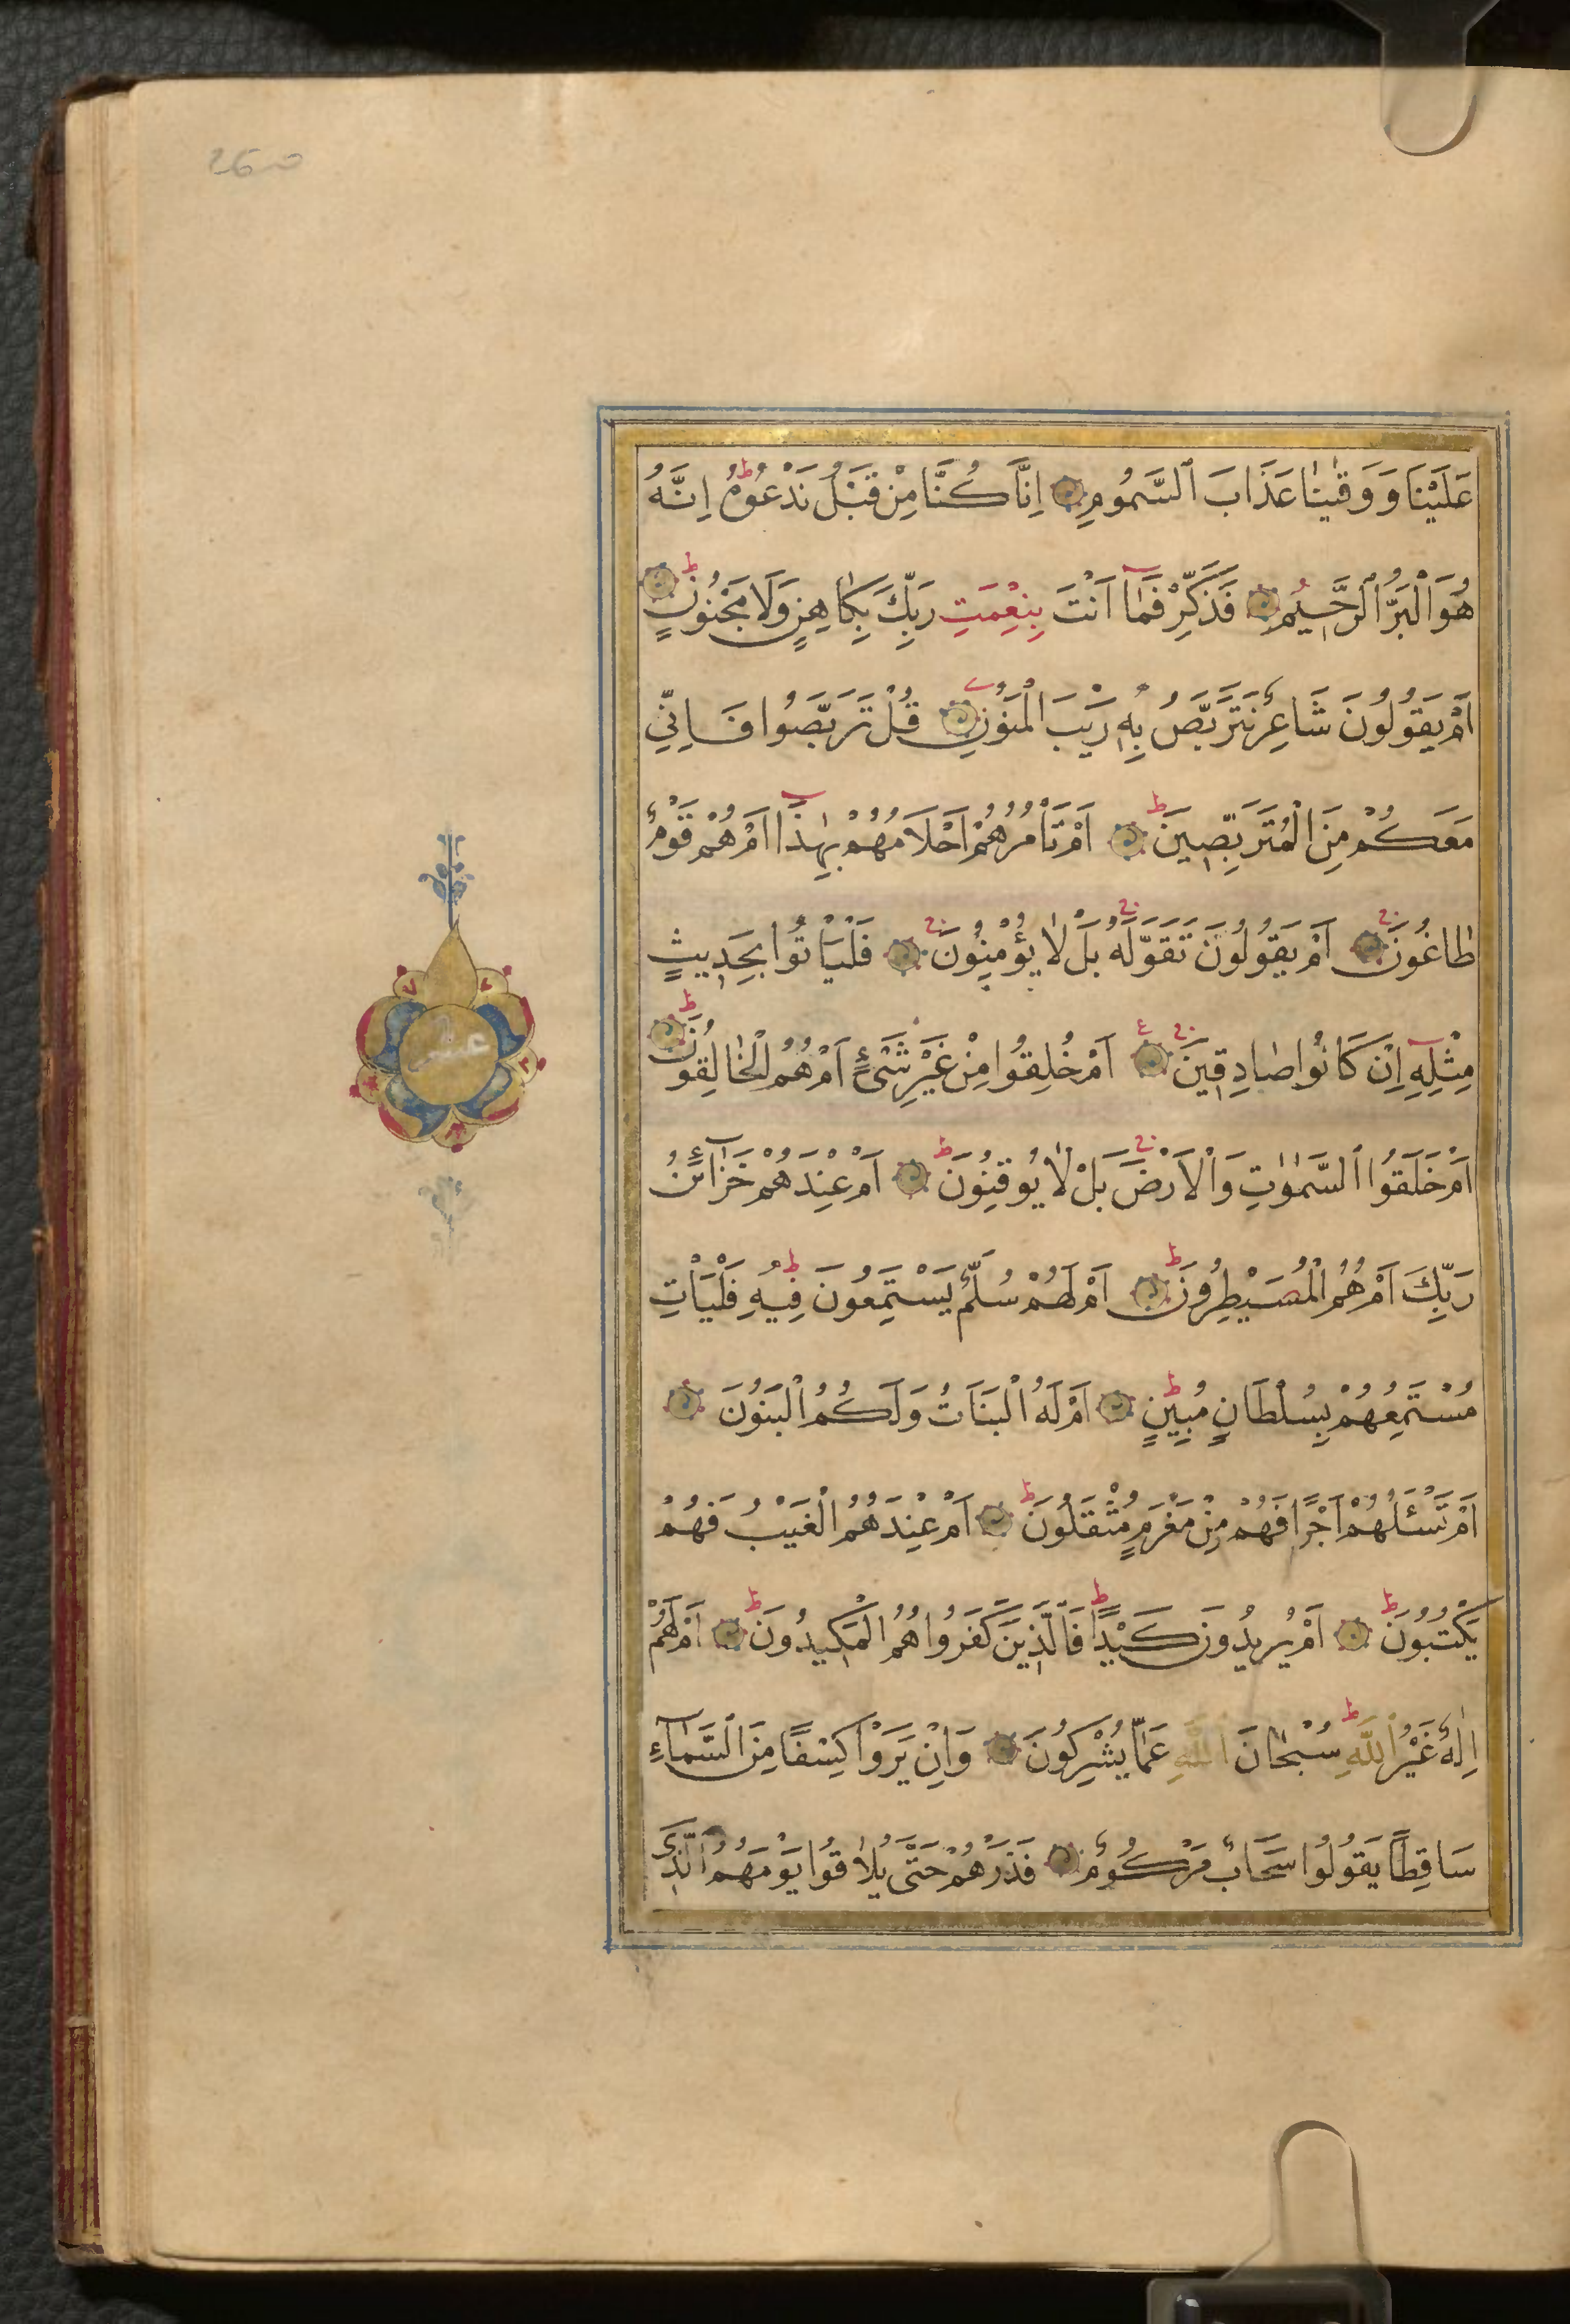 260
عَلَيْنَا وَوَقٰينَا عَذَابَ ٱلسَّمُومِ اِنَّا كُنَّا مِنْ قَبْلُ نَدْعُوهُ ط اِنَّهُ
هُوَ الْبَرُّ الرَّحِيمُ فَذَكِّرْ فَمَٓا اَنْتَ بِنِعْمَتِ رَبِّكَ بِكَاهِنٍ وَلَا مَجْنُونٍ ط
اَمْ يَقُولُونَ شَاعِرٌ نَتَرَبَّصُ بِهٖ رَيْبَ الْمَنُونِ قُلْ تَرَبَّصُوا فَاِنّٖى
مَعَكُمْ مِنَ الْمُتَرَبِّصٖينَ ط اَمْ تَأْمُرُهُمْ اَحْلَامُهُمْ بِهٰذَٓا اَمْ هُمْ قَوْمٌ
طَاغُونَ ج اَمْ يَقُولُونَ تَقَوَّلَهُ ج بَلْ لَا يُؤْمِنُونَ ج فَلْيَأْتُوا بِحَدٖيثٍ
مِثْلِهٖٓ اِنْ كَانُوا صَادِقٖينَ ج ع اَمْ خُلِقُوا مِنْ غَيْرِ شَىْءٍ اَمْ هُمُ الْخَالِقُونَ ط
اَمْ خَلَقُوا السَّمٰوٰتِ وَالْاَرْضَ ج بَلْ لَا يُوقِنُونَ ط اَمْ عِنْدَهُمْ خَزَٓائِنُ
رَبِّكَ اَمْ هُمُ الْمُصَيْطِرُونَ ط اَمْ لَهُمْ سُلَّمٌ يَسْتَمِعُونَ فٖيهِ ط فَلْيَأْتِ
مُسْتَمِعُهُمْ بِسُلْطَانٍ مُبٖينٍ ط اَمْ لَهُ الْبَنَاتُ وَلَكُمُ الْبَنُونَ
اَمْ تَسْئَلُهُمْ اَجْرًا فَهُمْ مِنْ مَغْرَمٍ مُثْقَلُونَ ط اَمْ عِنْدَهُمُ الْغَيْبُ فَهُمْ
يَكْتُبُونَ ط اَمْ يُرٖيدُونَ كَيْدًا ط فَالَّذٖينَ كَفَرُوا هُمُ الْمَكٖيدُونَ ط اَمْ لَهُمْ
اِلٰهٌ غَيْرُ اللّٰهِ ط سُبْحَانَ اللّٰهِ عَمَّا يُشْرِكُونَ وَاِنْ يَرَوْا كِسْفًا مِنَ السَّمَٓاءِ
سَاقِطًا يَقُولُوا سَحَابٌ مَرْكُومٌ فَذَرْهُمْ حَتّٰى يُلَاقُوا يَوْمَهُمُ الَّذٖى
عشر